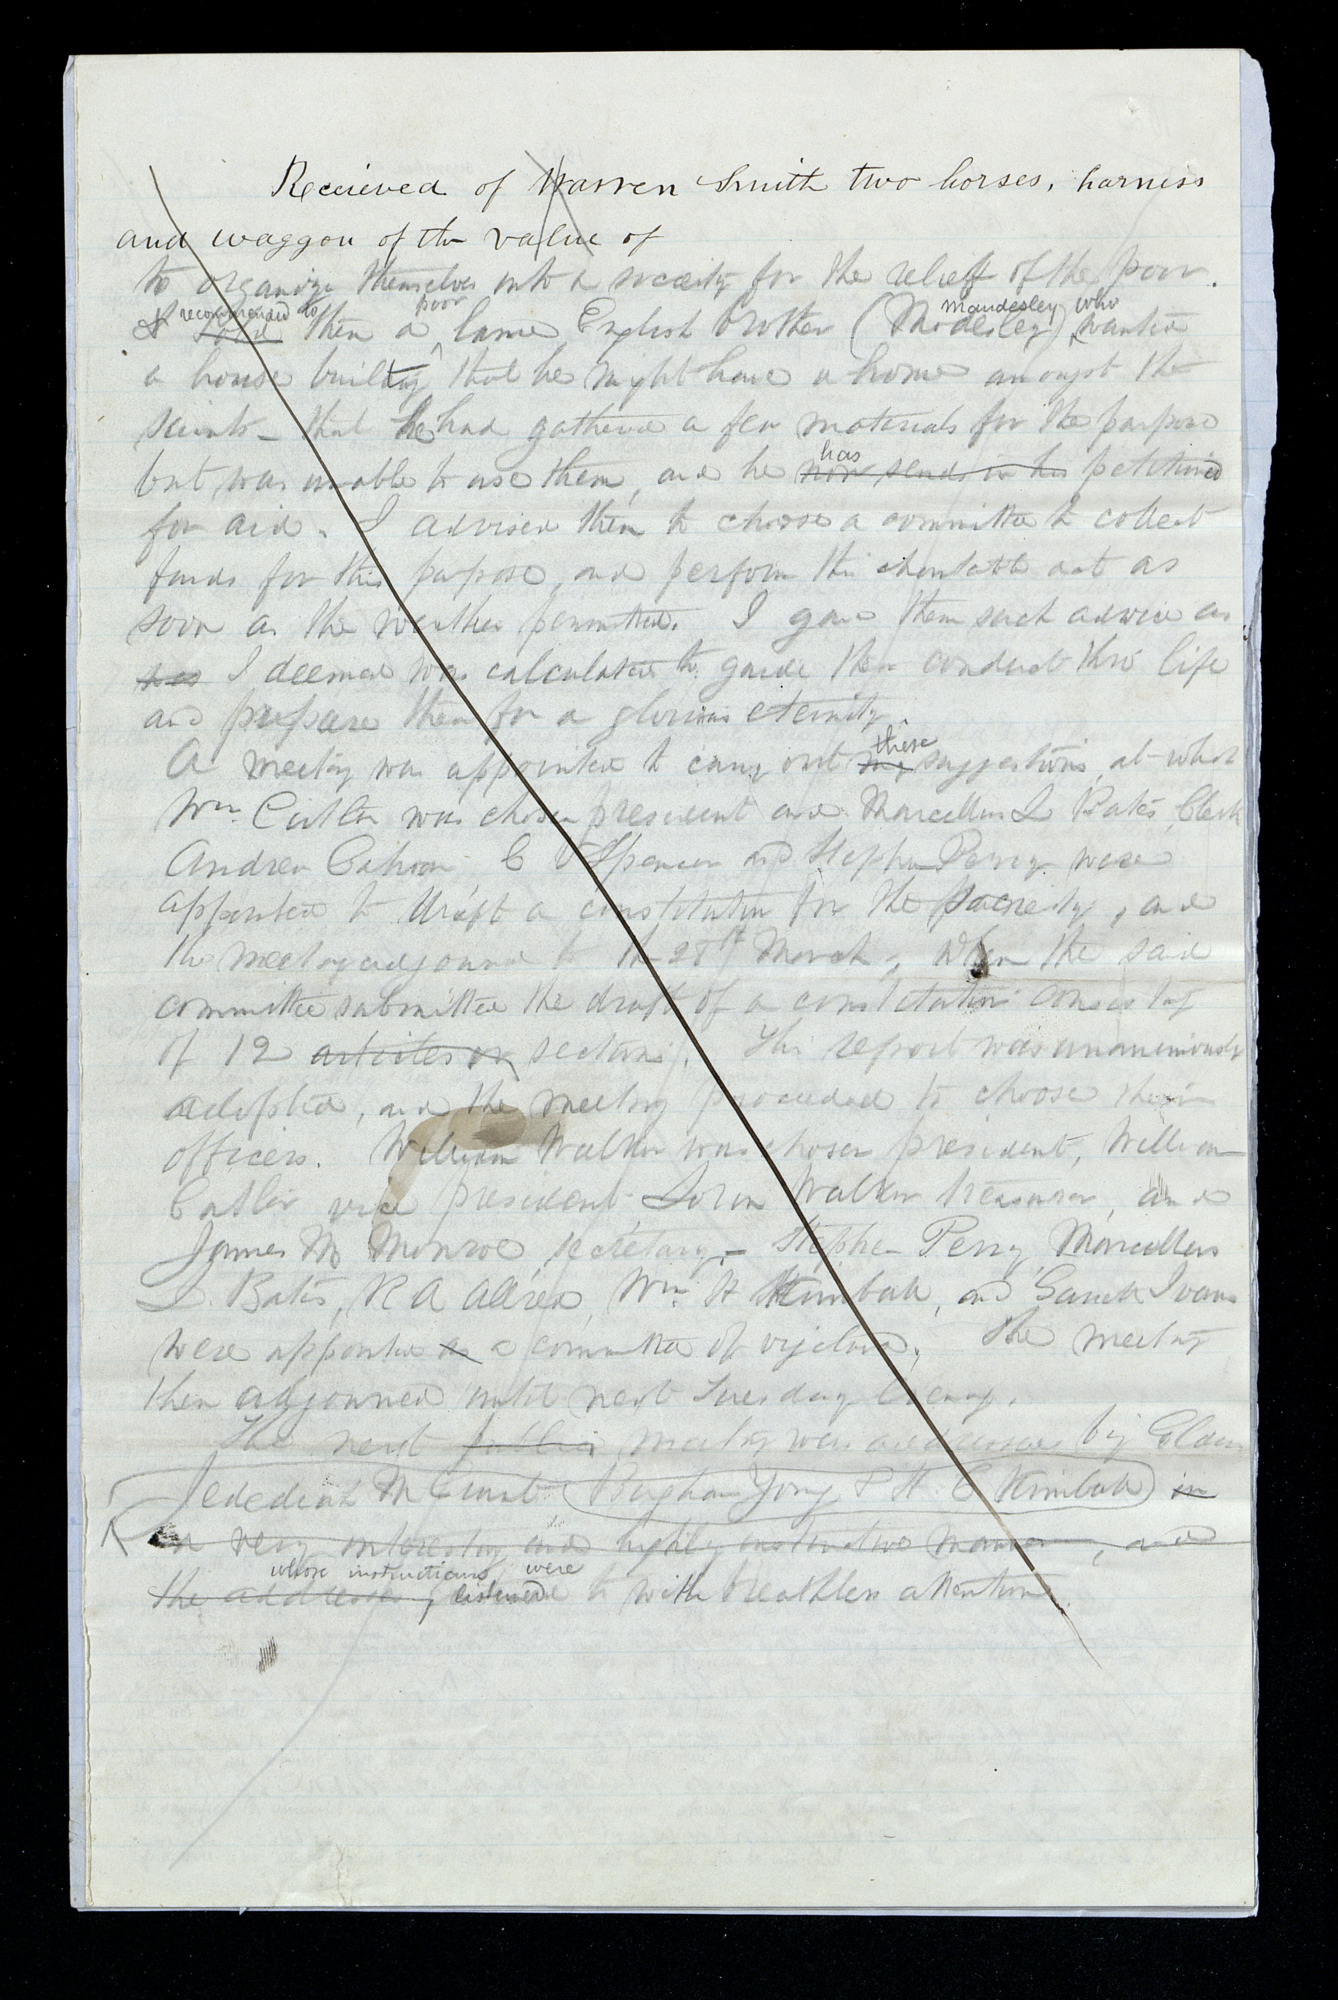 Receieved of Warren Smith two horses, harness
and waggon of the value of
to organize themselves into a society for the relief of the poor.
& recommended to told them a poor lame English brother (Modesley) Maudesley who wanted
a house built that he might have a home amongst the
saints – that he had gathered a few materials for the purpose
but was unable to use them, and he has now sends in his petitioned
for aid. I advised them to choose a committee to collect
funds for this purpose, and perform this charitable act as
soon as the weather permitted. I gave them such advice as
was I deemed was calculated to guide their conduct thro' life
and prepare them for a glorious eternity.
A meeting was appointed to carry out my these suggestions, at which
Wm. Cutler was chosen president and Marcellus L Bates, Clerk
Andrew Cahoon, C V Spencer and Stephen Perry were
appointed to draft a constitution for the society, and
the meeting adjourned to the 28th March, when the said
committee submitted the draft of a constitution consisting
of 12 articles or sections. The report was unanimously
adopted, and the meeting proceeded to choose their
officers. William Walker was chosen president, William
Cutler vice president, Lorin Walker treasurer, and
James M Monroe secretary – Stephen Perry, Marcellus
L. Bates, R A Allred, Wm. H Kimball, and Garrett Ivans
were appointed as a committee of vigilance. The meeting
then adjourned until next Tuesday evening.
The next public meeting was addressed by Elders
Jedediah M Grant (Brigham Young & H. C Kimball) in
a very interesting and highly instructive manner, and
the addresses, whose instructions were listened to with breathless attention.